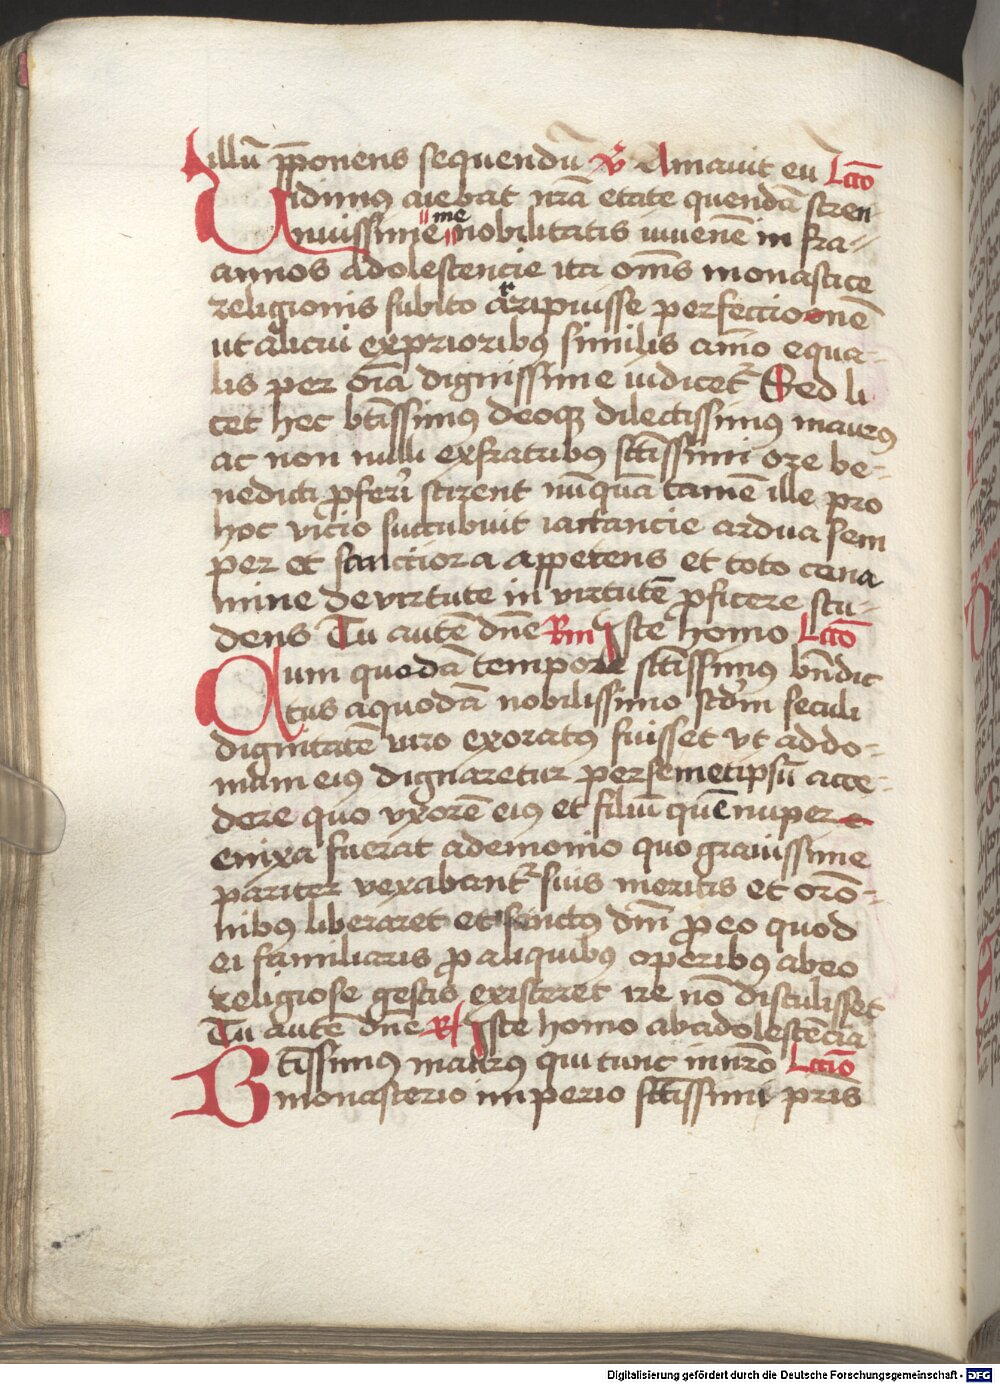 illū ꝓponens sequendū ℣ Amauit eū Lctō
Uidimus aiebat nr̄a etate quendā stren
nuissime me nobilitatis iuuenē in fra⸗
annos adolescencie ita om̄s monastice
religionis subito arripuisse perfectionē
ut alicui exprioribꝰ similis aīo equa⸗
lis per oīa dignissime iudicet᷑ Sed li
cet hec bt̄issimꝰ deoqꝫ dilectissimꝰ maurꝰ
ac non nulli exfratribꝰ sct̄issimi ore be⸗
nedicti ꝓferri scirent nūquā tamē ille pro
hoc vicio succubuit iactancie ardua sem
per et sanctiora appetens et toto cona
mine de virtute in virtutē ꝓficere stu⸗
dens Tu autē dn̄e Rm Iste homo Lctō
Cum quodā tempore sct̄issimꝰ bn̄dic
tus aquodā nobilissimo scd̄m seculi
dignitatē viro exoratꝰ fuisset vt addo⸗
mum eiꝰ dignaretur per semetipsū acce⸗
dere quo vxorē eiꝰ et filiū quē nuper
enixa fuerat ademonio quo grauissime
pariter vexabant᷑ suis meritis et orō⸗
nibꝰ liberaret et sanctꝰ dm̄ ꝓ eo quod
ei familiaris ꝓ aliquibꝰ operibꝰ abeo
religiose gestis existeret ire nō distulisset
Tu autē dn̄e ℟ Iste homo abadolescēcia
Bt̄issimꝰ maurus qui tunc in nr̄o Lctiō
monasterio imperio sct̄issimi pr̄is
Digitalisierung gefördert durch die Deutsche Forschungsgemeinschaft - DFG